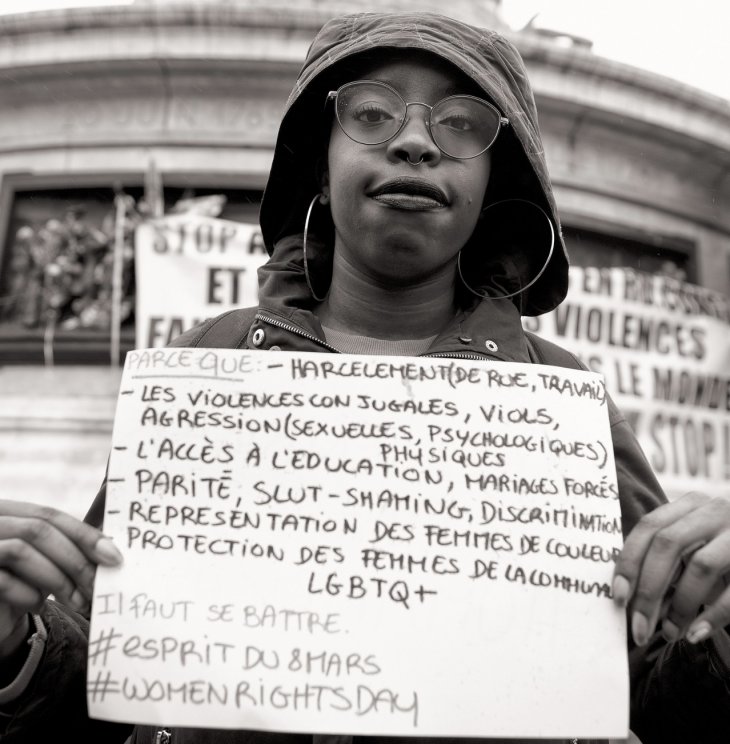 STOP A
ET
FA
EN
VIOLENCES
LE MONDE
STOP!
PARCE QUE: - HARCELEMENT (DE RUE, TRAVAIL)
- LES VIOLENCES CONJUGALES, VIOLS,
AGRESSION (SEXUELLES, PSYCHOLOGIQUES)
PHYSIQUES
- L'ACCÈS À L'EDUCATION, MARIAGES FORCÉS
- PARITÉ, SLUT-SHAMING, DISCRIMINATION
- REPRESENTATION DES FEMMES DE COULEUR
PROTECTION DES FEMMES DE LA COMMUN
LGBTQ+
Il FAUT SE BATTRE.
#ESPRIT DU 8 MARS
#WOMEN RIGHTS DAY